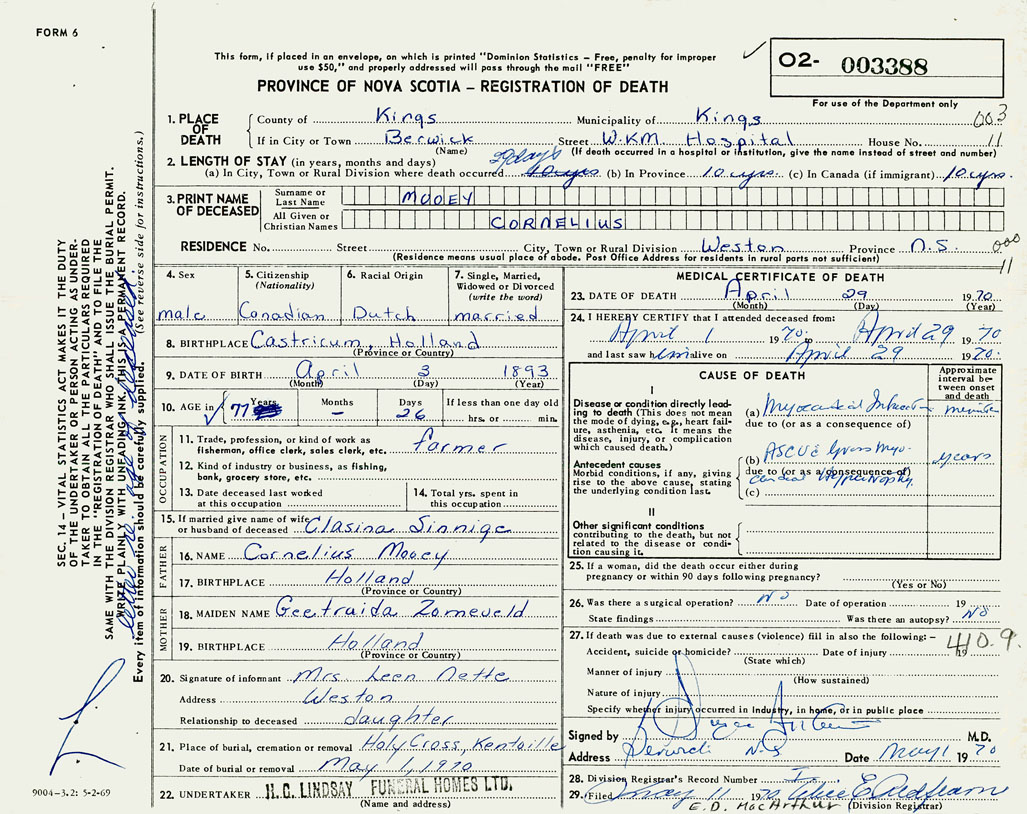 FORM 6
This form, if placed in an envelope, on which is printed "Dominion Statistics – Free, penalty for improper
use $50," and properly addressed will pass through the mail "FREE"
O2- 003388
PROVINCE OF NOVA SCOTIA – REGISTRATION OF DEATH
For use of the Department only
003
11
1. PLACE OF DEATH
County of Kings Municipality of Kings
If in City or Town Berwick Street W.K.M. Hospital House No.
(Name) (If death occurred in a hospital or institution, give the name instead of street and number)
2. LENGTH OF STAY (in years, months and days) 29 days
(a) In City, Town or Rural Division where death occurred 10 yrs (b) In Province 10 yrs. (c) In Canada (if immigrant) 10 yrs.
3. PRINT NAME OF DECEASED
Surname or Last Name MOOEY
All Given or Christian Names CORNELIUS
RESIDENCE No. Street City, Town or Rural Division Weston Province N.S.
(Residence means usual place of abode. Post Office Address for residents in rural parts not sufficient)
000
11
4. Sex male
5. Citizenship (Nationality) Canadian
6. Racial Origin Dutch
7. Single, Married, Widowed or Divorced (write the word) married
8. BIRTHPLACE Castricum, Holland
(Province or Country)
9. DATE OF BIRTH April 3 1893
(Month) (Day) (Year)
10. AGE in 77 Years Months – Days 26 If less than one day old
hrs. or min.
OCCUPATION
11. Trade, profession, or kind of work as
fisherman, office clerk, sales clerk, etc. farmer
12. Kind of industry or business, as fishing,
bank, grocery store, etc.
13. Date deceased last worked
at this occupation
14. Total yrs. spent in
this occupation
15. If married give name of wife
or husband of deceased Clasina Sinnige
FATHER
16. NAME Cornelius Mooey
17. BIRTHPLACE Holland
(Province or Country)
MOTHER
18. MAIDEN NAME Geetraida Zomeveld
19. BIRTHPLACE Holland
(Province or Country)
20. Signature of informant Mrs. Leen Nette
Address Weston
Relationship to deceased daughter
21. Place of burial, cremation or removal Holy Cross, Kentville
Date of burial or removal May 1, 1970
22. UNDERTAKER H. C. LINDSAY FUNERAL HOMES LTD.
(Name and address)
MEDICAL CERTIFICATE OF DEATH
23. DATE OF DEATH April 29 1970
(Month) (Day) (Year)
24. I HEREBY CERTIFY that I attended deceased from:
April 1 1970 to April 29 1970
and last saw him alive on April 29 1970.
CAUSE OF DEATH
Approximate interval between onset and death
I
Disease or condition directly leading to death (This does not
mean the mode of dying, e.g., heart failure, asthenia, etc. It means the
disease, injury, or complication
which caused death.)
(a) Myocardial Infarction
due to (or as a consequence of)
Antecedent causes
Morbid conditions, if any, giving
rise to the above cause, stating
the underlying condition last.
(b) ASCVD Gross Myo- years
due to (or as a consequence of)
cardial Hypertrophy.
(c)
II
Other significant conditions
contributing to the death, but not
related to the disease or condition causing it.
25. If a woman, did the death occur either during
pregnancy or within 90 days following pregnancy?
(Yes or No)
26. Was there a surgical operation? No Date of operation 19
State findings Was there an autopsy? No
27. If death was due to external causes (violence) fill in also the following: –
410.9
Accident, suicide or homicide? Date of injury 19
(State which)
Manner of injury
(How sustained)
Nature of injury
Specify whether injury occurred in industry, in home, or in public place
Signed by M.D.
Address Berwick N.S. Date May 1 1970
28. Division Registrar's Record Number
29. Filed May 11 1970
E. D. MacArthur (Division Registrar)
SEC. 14 – VITAL STATISTICS ACT MAKES IT THE DUTY
OF THE UNDERTAKER OR PERSON ACTING AS UNDER-
TAKER TO OBTAIN ALL THE PARTICULARS REQUIRED
IN THE "REGISTRATION OF DEATH" AND TO FILE THE
SAME WITH THE DIVISION REGISTRAR WHO SHALL ISSUE THE BURIAL PERMIT.
WRITE PLAINLY WITH UNFADING INK. THIS IS A PERMANENT RECORD.
letter re: age of deceased
Every item of information should be carefully supplied. (See reverse side for instructions.)
9004-3.2: 5-2-69